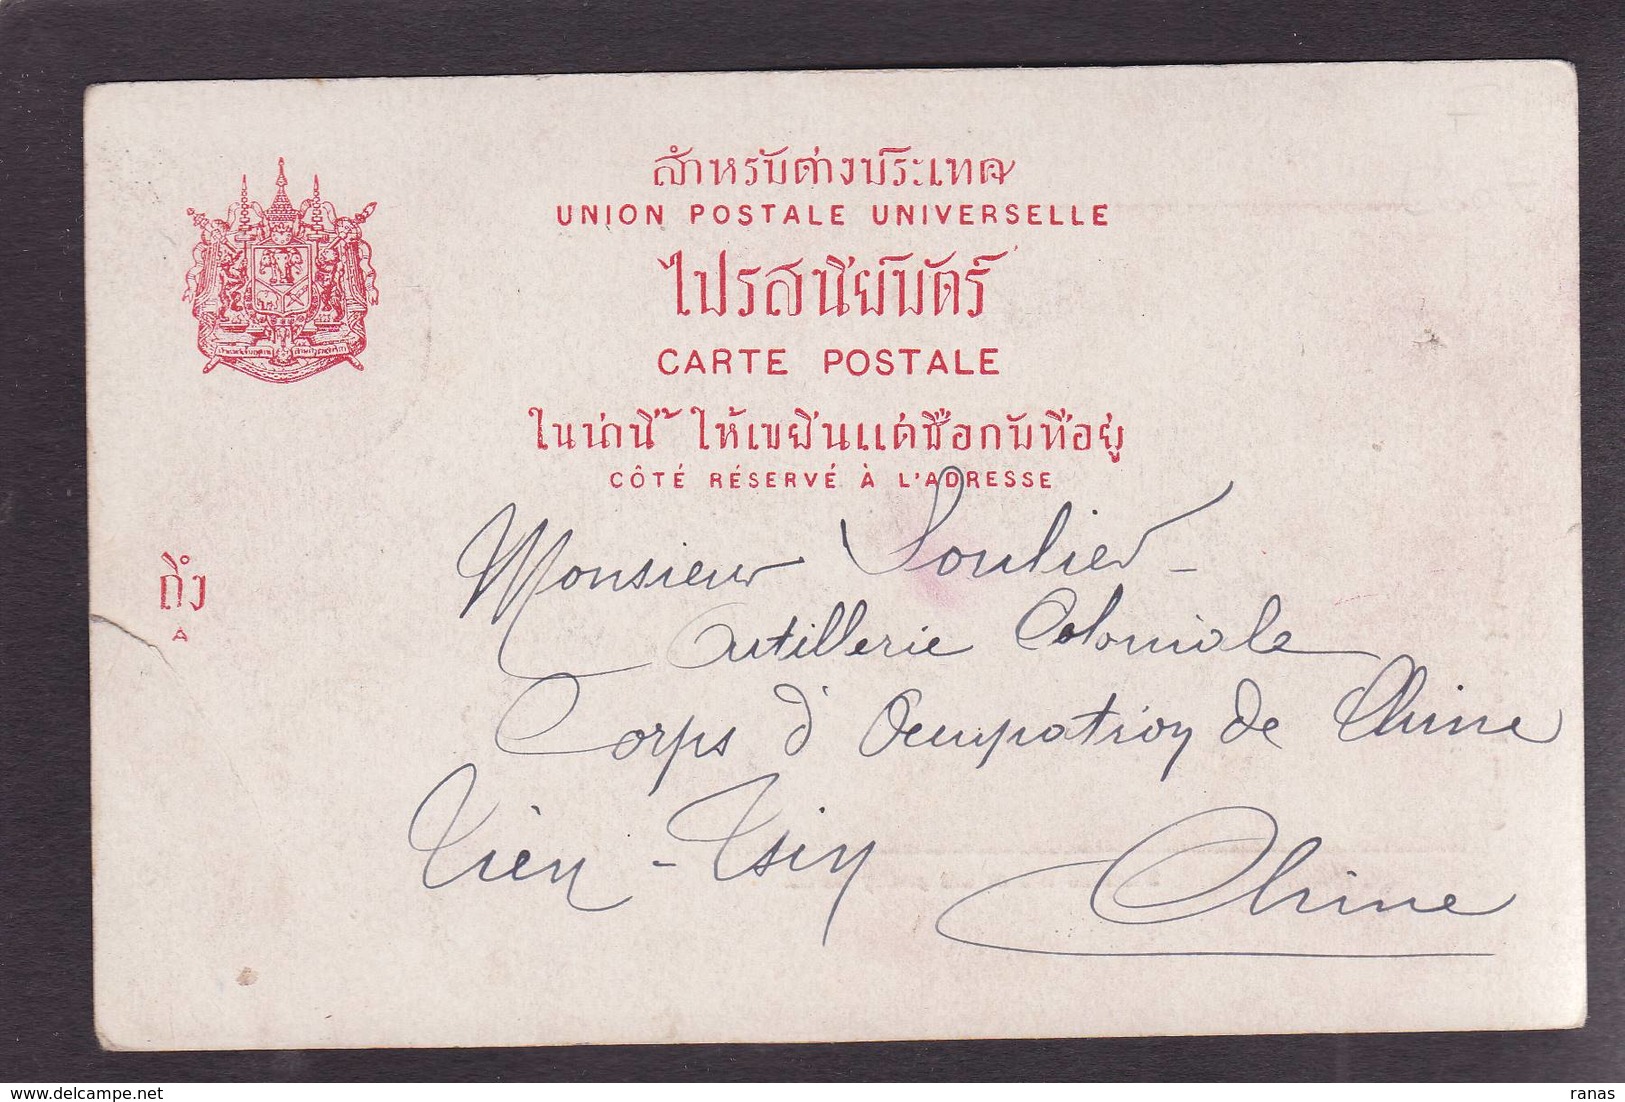 สำหรับต่างประเทศ
UNION POSTALE UNIVERSELLE
ไปรสนียบัตร์
CARTE POSTALE
ในน่านี้ ให้เขยีนแต่ชื่อกับที่อยู่
CÔTÉ RÉSERVÉ À L'ADRESSE
ถึง
A
Monsieur Soulier -
Artillerie Coloniale
Corps d'Occupation de Chine
Tien-Tsin Chine
delcampe.net
ranas